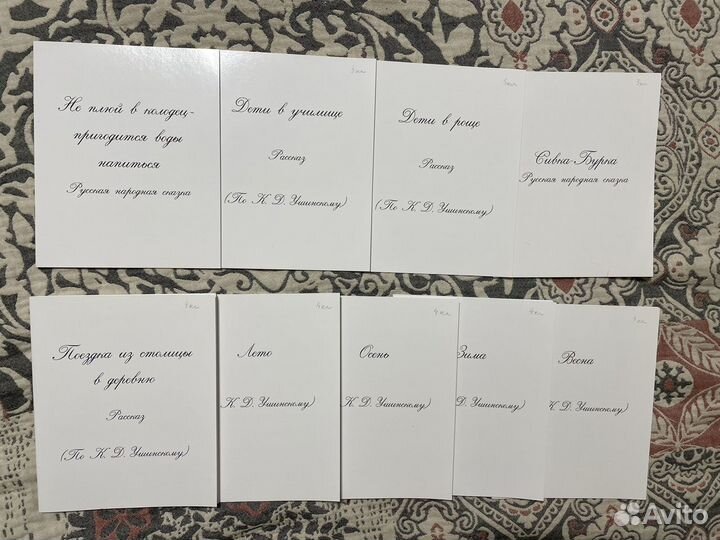 Не плюй в колодец-
пригодится воды
напиться
Русская народная сказка
3 кл
Дети в училище
Рассказ
(По К. Д. Ушинскому)
Дети в роще
Рассказ
(По К. Д. Ушинскому)
Сивка-Бурка
Русская народная сказка
4 кл
Поездка из столицы
в деревню
Рассказ
(По К. Д. Ушинскому)
4 кл
Лето
К. Д. Ушинскому)
4 кл
Осень
К. Д. Ушинскому)
4 кл
Зима
Д. Ушинскому)
Весна
К. Д. Ушинскому)
Avito